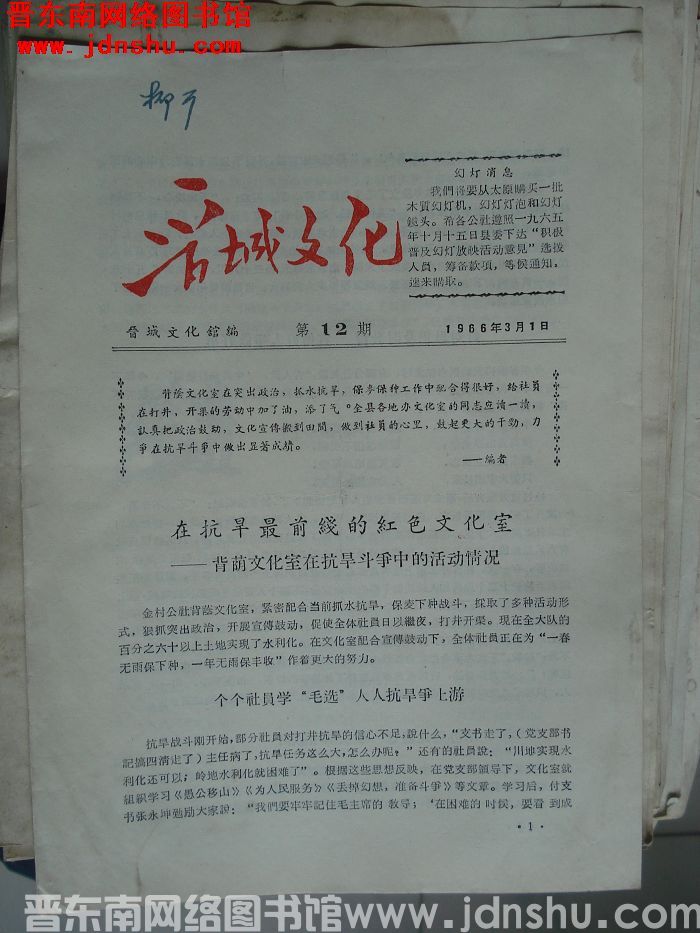 晋东南网络图书馆
www.jdnshu.com
幻灯消息
我們将要从太原購买一批
木質幻灯机，幻灯灯泡和幻灯
鏡头。希各公社遵照一九六五
年十月十五日县委下达“积极
普及幻灯放映活动意見”选拨
人員，筹备款項，等候通知，
速来購取。
晋城文化
晉城文化館編
第12期
1966年3月1日
背蔭文化室在突出政治，抓水抗旱，保麥保种工作中配合得很好，給社員
在打井，开渠的劳动中加了油，添了气。全县各地办文化室的同志应讀一讀，
认真把政治鼓动，文化宣传搬到田間，做到社員的心里，鼓起更大的干劲，力
爭在抗旱斗爭中做出显著成績。
——編者
在抗旱最前綫的紅色文化室
——背荫文化室在抗旱斗爭中的活动情况
金村公社背蔭文化室，紧密配合当前抓水抗旱，保麦下种战斗，採取了多种活动形
式，狠抓突出政治，开展宣傳鼓动，促使全体社員日以繼夜，打井开渠。現在全大队的
百分之六十以上土地实現了水利化。在文化室配合宣傳鼓动下，全体社員正在为“一春
无雨保下种，一年无雨保丰收”作着更大的努力。
个个社員学“毛选”人人抗旱爭上游
抗旱战斗剛开始，部分社員对打井抗旱的信心不足，說什么，“支书走了，（党支部书
記搞四清走了）主任病了，抗旱任务这么大，怎么办呢？”还有的社員說：“川地实現水
利化还可以；岭地水利化就困难了”。根据这些思想反映，在党支部領导下，文化室就
組织学习《愚公移山》《为人民服务》《丢掉幻想，准备斗爭》等文章。学习后，付支
书张永坤勉励大家說：“我們要牢牢記住毛主席的教导；‘在困难的时候，要看到成
·1·
晋东南网络图书馆www.jdnshu.com